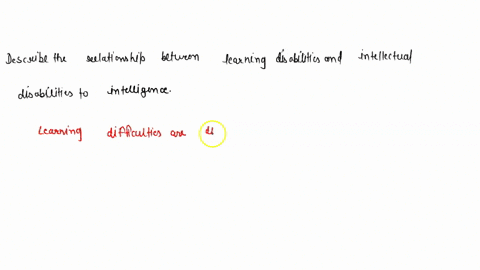 Describe the relationship between learning disabilities and intellectual
disabilities to intelligence.
Learning difficulties are di